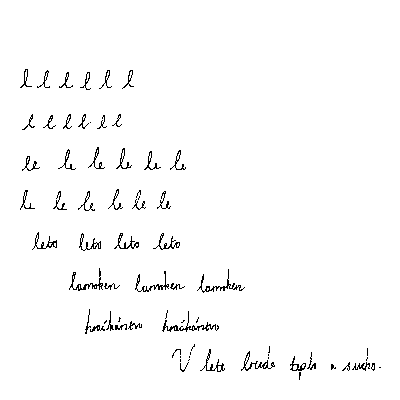 l l l l l l
l l l l l
le le le le le le
le le le le le le
leto leto leto leto
lamoken lamoken lamoken
hračkárstvo hračkárstvo
V lete bude teplo a sucho.